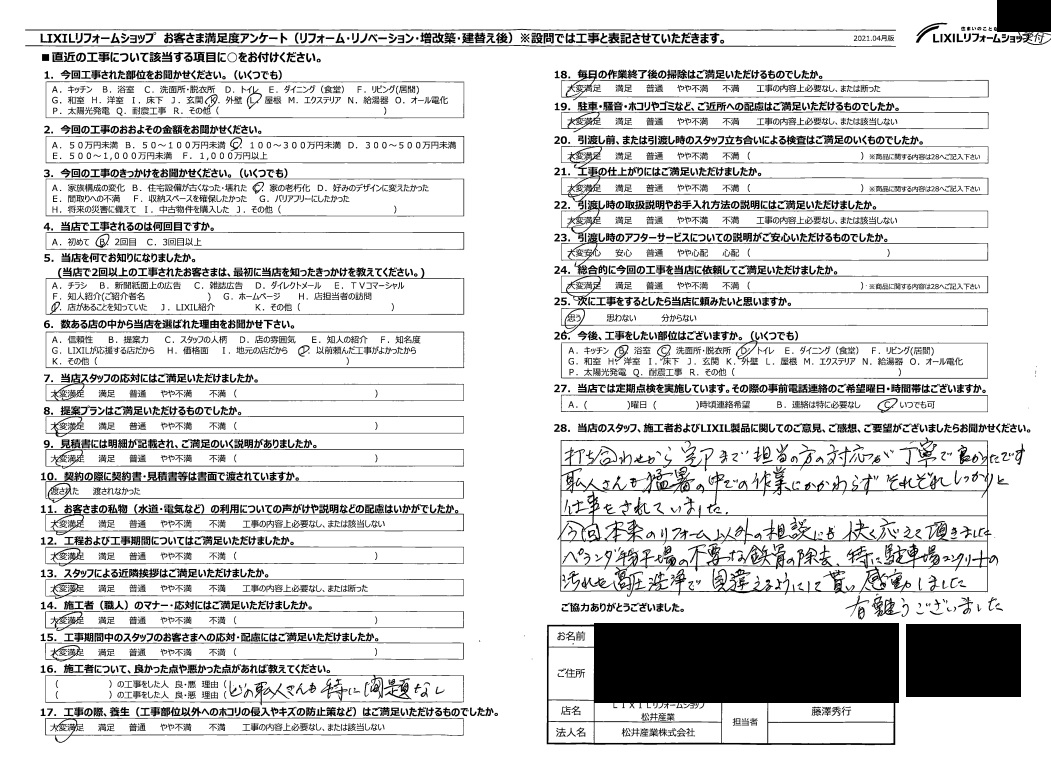 LIXILリフォームショップ お客さま満足度アンケート（リフォーム・リノベーション・増改築・建替え後）※設問では工事と表記させていただきます。
2021.04月版
LIXILリフォームショップ
■直近の工事について該当する項目に○をお付けください。
1．今回工事された部位をお聞かせください。（いくつでも）
A．キッチン B．浴室 C．洗面所・脱衣所 D．トイレ E．ダイニング（食堂） F．リビング(居間)
G．和室 H．洋室 I．床下 J．玄関 K．外壁 L．屋根 M．エクステリア N．給湯器 O．オール電化
P．太陽光発電 Q．耐震工事 R．その他（ ）
2．今回の工事のおおよその金額をお聞かせください。
A．50万円未満 B．50～100万円未満 C．100～300万円未満 D．300～500万円未満
E．500～1,000万円未満 F．1,000万円以上
3．今回の工事のきっかけをお聞かせください。（いくつでも）
A．家族構成の変化 B．住宅設備が古くなった・壊れた C．家の老朽化 D．好みのデザインに変えたかった
E．間取りへの不満 F．収納スペースを確保したかった G．バリアフリーにしたかった
H．将来の災害に備えて I．中古物件を購入した J．その他（ ）
4．当店で工事されるのは何回目ですか。
A．初めて B．2回目 C．3回目以上
5．当店を何でお知りになりましたか。
（当店で2回以上の工事されたお客さまは、最初に当店を知ったきっかけを教えてください。）
A．チラシ B．新聞紙面上の広告 C．雑誌広告 D．ダイレクトメール E．TVコマーシャル
F．知人紹介(ご紹介者名 ) G．ホームページ H．店担当者の訪問
I．店があることを知っていた J．LIXIL紹介 K．その他（ ）
6．数ある店の中から当店を選ばれた理由をお聞かせ下さい。
A．信頼性 B．提案力 C．スタッフの人柄 D．店の雰囲気 E．知人の紹介 F．知名度
G．LIXILが応援する店だから H．価格面 I．地元の店だから J．以前頼んだ工事がよかったから
K．その他（ ）
7．当店スタッフの応対にはご満足いただけましたか。
大変満足 満足 普通 やや不満 不満（ ）
8．提案プランはご満足いただけるものでしたか。
大変満足 満足 普通 やや不満 不満（ ）
9．見積書には明細が記載され、ご満足のいく説明がありましたか。
大変満足 満足 普通 やや不満 不満（ ）
10．契約の際に契約書・見積書等は書面で渡されていますか。
渡された 渡されなかった
11．お客さまの私物（水道・電気など）の利用についての声がけや説明などの配慮はいかがでしたか。
大変満足 満足 普通 やや不満 不満 工事の内容上必要なし、または該当しない
12．工程および工事期間についてはご満足いただけましたか。
大変満足 満足 普通 やや不満 不満（ ）
13．スタッフによる近隣挨拶はご満足いただけましたか。
大変満足 満足 普通 やや不満 不満 工事の内容上必要なし、または断った
14．施工者（職人）のマナー・応対にはご満足いただけましたか。
大変満足 満足 普通 やや不満 不満（ ）
15．工事期間中のスタッフのお客さまへの応対・配慮にはご満足いただけましたか。
大変満足 満足 普通 やや不満 不満（ ）
16．施工者について、良かった点や悪かった点があれば教えてください。
（ ）の工事をした人 良・悪 理由（どの職人さんも特に問題なし
（ ）の工事をした人 良・悪 理由（
17．工事の際、養生（工事部位以外へのホコリの侵入やキズの防止策など）はご満足いただけるものでしたか。
大変満足 満足 普通 やや不満 不満 工事の内容上必要なし、または該当しない
18．毎日の作業終了後の掃除はご満足いただけるものでしたか。
大変満足 満足 普通 やや不満 不満 工事の内容上必要なし、または断った
19．駐車・騒音・ホコリやゴミなど、ご近所への配慮はご満足いただけるものでしたか。
大変満足 満足 普通 やや不満 不満 工事の内容上必要なし、または該当しない
20．引渡し前、または引渡し時のスタッフ立ち合いによる検査はご満足のいくものでしたか。
大変満足 満足 普通 やや不満 不満（ ）※商品に関する内容は28へご記入下さい
21．工事の仕上がりにはご満足いただけましたか。
大変満足 満足 普通 やや不満 不満（ ）※商品に関する内容は28へご記入下さい
22．引渡し時の取扱説明やお手入れ方法の説明にはご満足いただけましたか。
大変満足 満足 普通 やや不満 不満 工事の内容上必要なし、または該当しない
23．引渡し時のアフターサービスについての説明がご安心いただけるものでしたか。
大変安心 安心 普通 やや心配 心配（ ）
24．総合的に今回の工事を当店に依頼してご満足いただけましたか。
大変満足 満足 普通 やや不満 不満（ ）※商品に関する内容は28へご記入下さい
25．次に工事をするとしたら当店に頼みたいと思いますか。
思う 思わない 分からない
26．今後、工事をしたい部位はございますか。（いくつでも）
A．キッチン B．浴室 C．洗面所・脱衣所 D．トイレ E．ダイニング（食堂） F．リビング(居間)
G．和室 H．洋室 I．床下 J．玄関 K．外壁 L．屋根 M．エクステリア N．給湯器 O．オール電化
P．太陽光発電 Q．耐震工事 R．その他（ ）
27．当店では定期点検を実施しています。その際の事前電話連絡のご希望曜日・時間帯はございますか。
A．（ ）曜日（ ）時頃連絡希望 B．連絡は特に必要なし C．いつでも可
28．当店のスタッフ、施工者およびLIXIL製品に関してのご意見、ご感想、ご要望がございましたらお聞かせください。
打ち合わせから完了まで担当の方の対応が丁寧で良かったです
職人さんも猛暑の中での作業にかかわらずそれぞれしっかりと
仕事をされていました。
今回本来のリフォーム以外の相談にも快く応えて頂きました
ベランダ物干場の不要な鉄骨の除去、特に駐車場コンクリートの
汚れを高圧洗浄で見違えるようにして貰い感動しました
有難うございました
ご協力ありがとうございました。
お名前
ご住所
店名 LIXILリフォームショップ 松井産業 担当者 藤澤秀行
法人名 松井産業株式会社